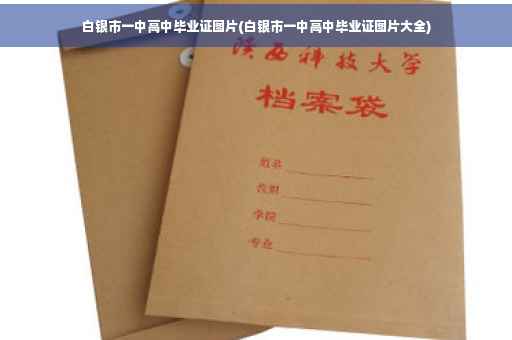 白银市一中高中毕业证图片(白银市一中高中毕业证图片大全)
陕西科技大学
档案袋
姓名
学院
专业